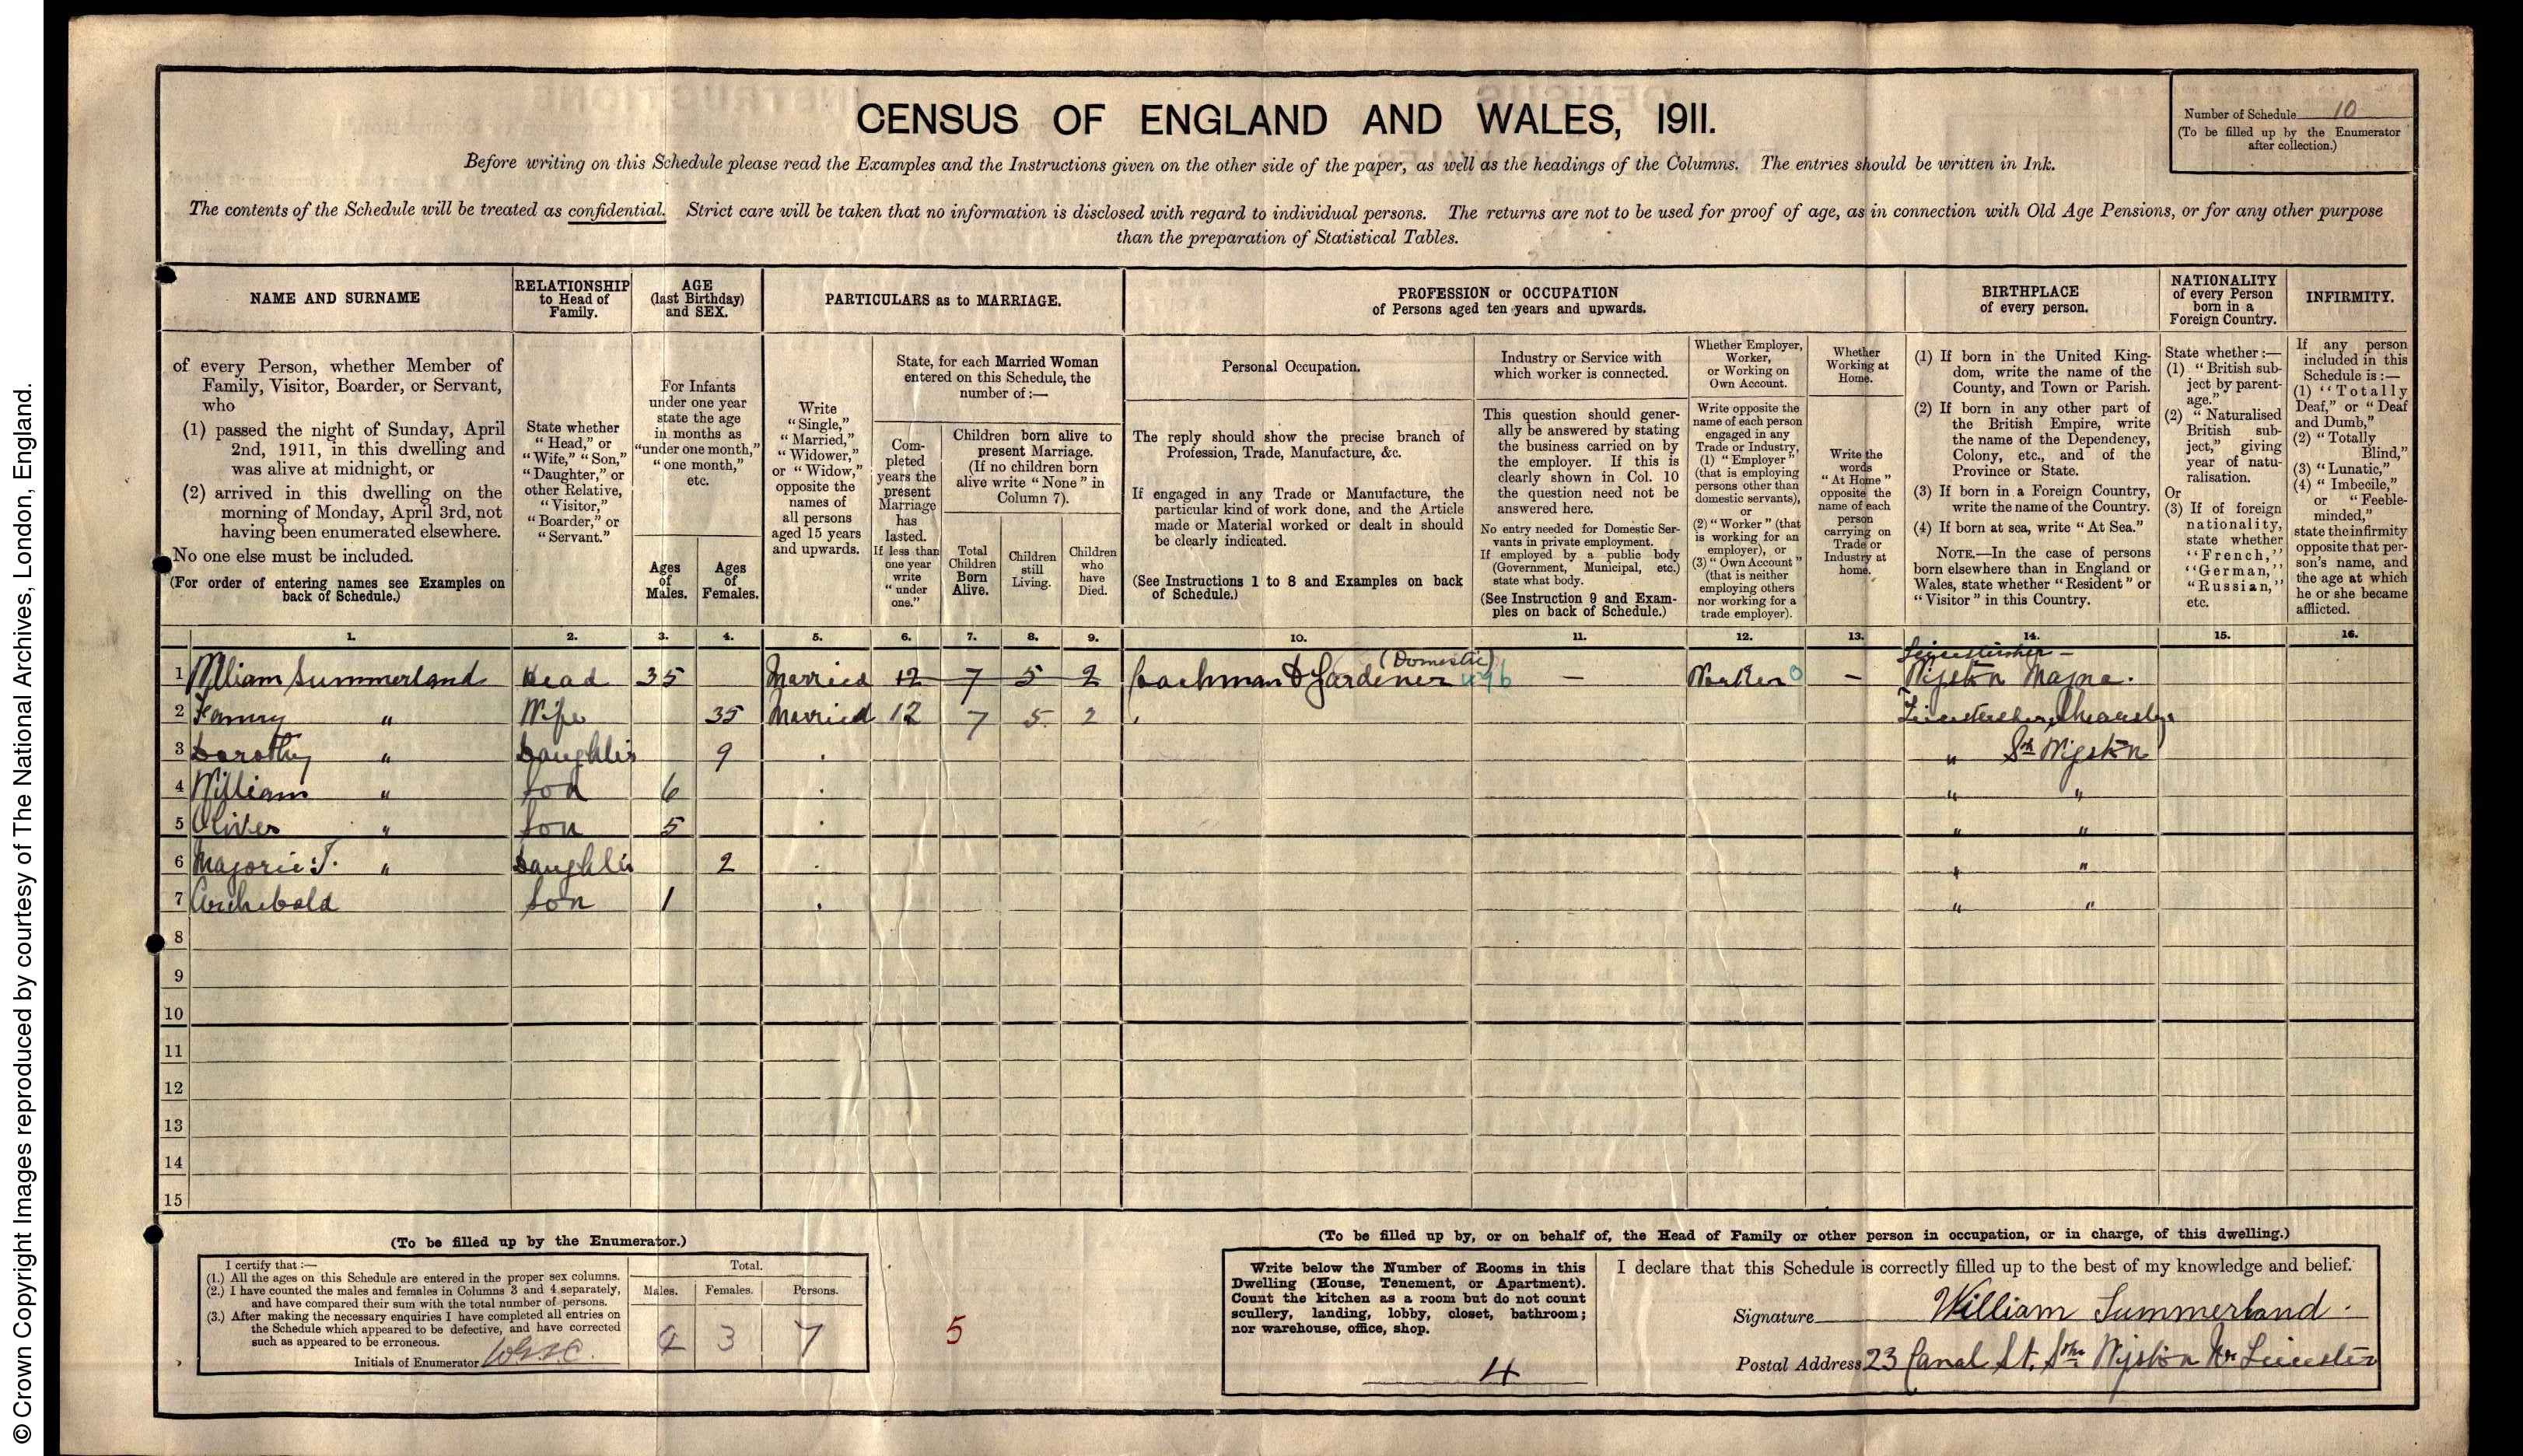 © Crown Copyright Images reproduced by courtesy of The National Archives, London, England.
CENSUS OF ENGLAND AND WALES, 1911.
Number of Schedule 10
(To be filled up by the Enumerator
after collection.)
Before writing on this Schedule please read the Examples and the Instructions given on the other side of the paper, as well as the headings of the Columns. The entries should be written in Ink.
The contents of the Schedule will be treated as confidential. Strict care will be taken that no information is disclosed with regard to individual persons. The returns are not to be used for proof of age, as in connection with Old Age Pensions, or for any other purpose
than the preparation of Statistical Tables.
NAME AND SURNAME
of every Person, whether Member of
Family, Visitor, Boarder, or Servant,
who
(1) passed the night of Sunday, April
2nd, 1911, in this dwelling and
was alive at midnight, or
(2) arrived in this dwelling on the
morning of Monday, April 3rd, not
having been enumerated elsewhere.
No one else must be included.
(For order of entering names see Examples on
back of Schedule.)
RELATIONSHIP
to Head of
Family.
State whether
"Head," or
"Wife," "Son,"
"Daughter," or
other Relative,
"Visitor,"
"Boarder," or
"Servant."
AGE
(last Birthday)
and SEX.
For Infants
under one year
state the age
in months as
"under one month,"
"one month,"
etc.
Ages
of
Males.
Ages
of
Females.
PARTICULARS as to MARRIAGE.
Write
"Single,"
"Married,"
"Widower,"
or "Widow,"
opposite the
names of
all persons
aged 15 years
and upwards.
State, for each Married Woman
entered on this Schedule, the
number of :—
Com-
pleted
years the
present
Marriage
has
lasted.
If less than
one year
write
"under
one."
Children born alive to
present Marriage.
(If no children born
alive write "None" in
Column 7).
Total
Children
Born
Alive.
Children
still
Living.
Children
who
have
Died.
PROFESSION or OCCUPATION
of Persons aged ten years and upwards.
Personal Occupation.
The reply should show the precise branch of
Profession, Trade, Manufacture, &c.
If engaged in any Trade or Manufacture, the
particular kind of work done, and the Article
made or Material worked or dealt in should
be clearly indicated.
(See Instructions 1 to 8 and Examples on back
of Schedule.)
Industry or Service with
which worker is connected.
This question should gener-
ally be answered by stating
the business carried on by
the employer. If this is
clearly shown in Col. 10
the question need not be
answered here.
No entry needed for Domestic Ser-
vants in private employment.
If employed by a public body
(Government, Municipal, etc.)
state what body.
(See Instruction 9 and Exam-
ples on back of Schedule.)
Whether Employer,
Worker,
or Working on
Own Account.
Write opposite the
name of each person
engaged in any
Trade or Industry,
(1) "Employer"
(that is employing
persons other than
domestic servants),
or
(2) "Worker" (that
is working for an
employer), or
(3) "Own Account"
(that is neither
employing others
nor working for a
trade employer).
Whether
Working at
Home.
Write the
words
"At Home"
opposite the
name of each
person
carrying on
Trade or
Industry at
home.
BIRTHPLACE
of every person.
(1) If born in the United King-
dom, write the name of the
County, and Town or Parish.
(2) If born in any other part of
the British Empire, write
the name of the Dependency,
Colony, etc., and of the
Province or State.
(3) If born in a Foreign Country,
write the name of the Country.
(4) If born at sea, write "At Sea."
NOTE.—In the case of persons
born elsewhere than in England or
Wales, state whether "Resident" or
"Visitor" in this Country.
NATIONALITY
of every Person
born in a
Foreign Country.
State whether :—
(1) "British sub-
ject by parent-
age."
(2) "Naturalised
British sub-
ject," giving
year of natu-
ralisation.
Or
(3) If of foreign
nationality,
state whether
"French,"
"German,"
"Russian,"
etc.
INFIRMITY.
If any person
included in this
Schedule is :—
(1) "Totally
Deaf," or "Deaf
and Dumb,"
(2) "Totally
Blind,"
(3) "Lunatic,"
(4) "Imbecile,"
or "Feeble-
minded,"
state the infirmity
opposite that per-
son's name, and
the age at which
he or she became
afflicted.
1. 2. 3. 4. 5. 6. 7. 8. 9. 10. 11. 12. 13. 14. 15. 16.
1 William Summerland Head 35 Married 12 7 5 2 Coachman & Gardener (Domestic) 496 — Worker 0 — Leicestershire - Wigston Magna.
2 Fanny " Wife 35 Married 12 7 5 2 Leicestershire, Shearsby
3 Dorothy " Daughter 9 " Sth Wigston
4 William " Son 6 " "
5 Oliver " Son 5 " "
6 Majorie J. " Daughter 2 " "
7 Archibald Son 1 " "
8
9
10
11
12
13
14
15
(To be filled up by the Enumerator.)
I certify that :—
(1.) All the ages on this Schedule are entered in the proper sex columns.
(2.) I have counted the males and females in Columns 3 and 4 separately,
and have compared their sum with the total number of persons.
(3.) After making the necessary enquiries I have completed all entries on
the Schedule which appeared to be defective, and have corrected
such as appeared to be erroneous.
Initials of Enumerator
Total.
Males. Females. Persons.
4 3 7
5
(To be filled up by, or on behalf of, the Head of Family or other person in occupation, or in charge, of this dwelling.)
Write below the Number of Rooms in this
Dwelling (House, Tenement, or Apartment).
Count the kitchen as a room but do not count
scullery, landing, lobby, closet, bathroom;
nor warehouse, office, shop.
4
I declare that this Schedule is correctly filled up to the best of my knowledge and belief.
Signature William Summerland.
Postal Address 23 Canal St. Sth Wigston Nr Leicester